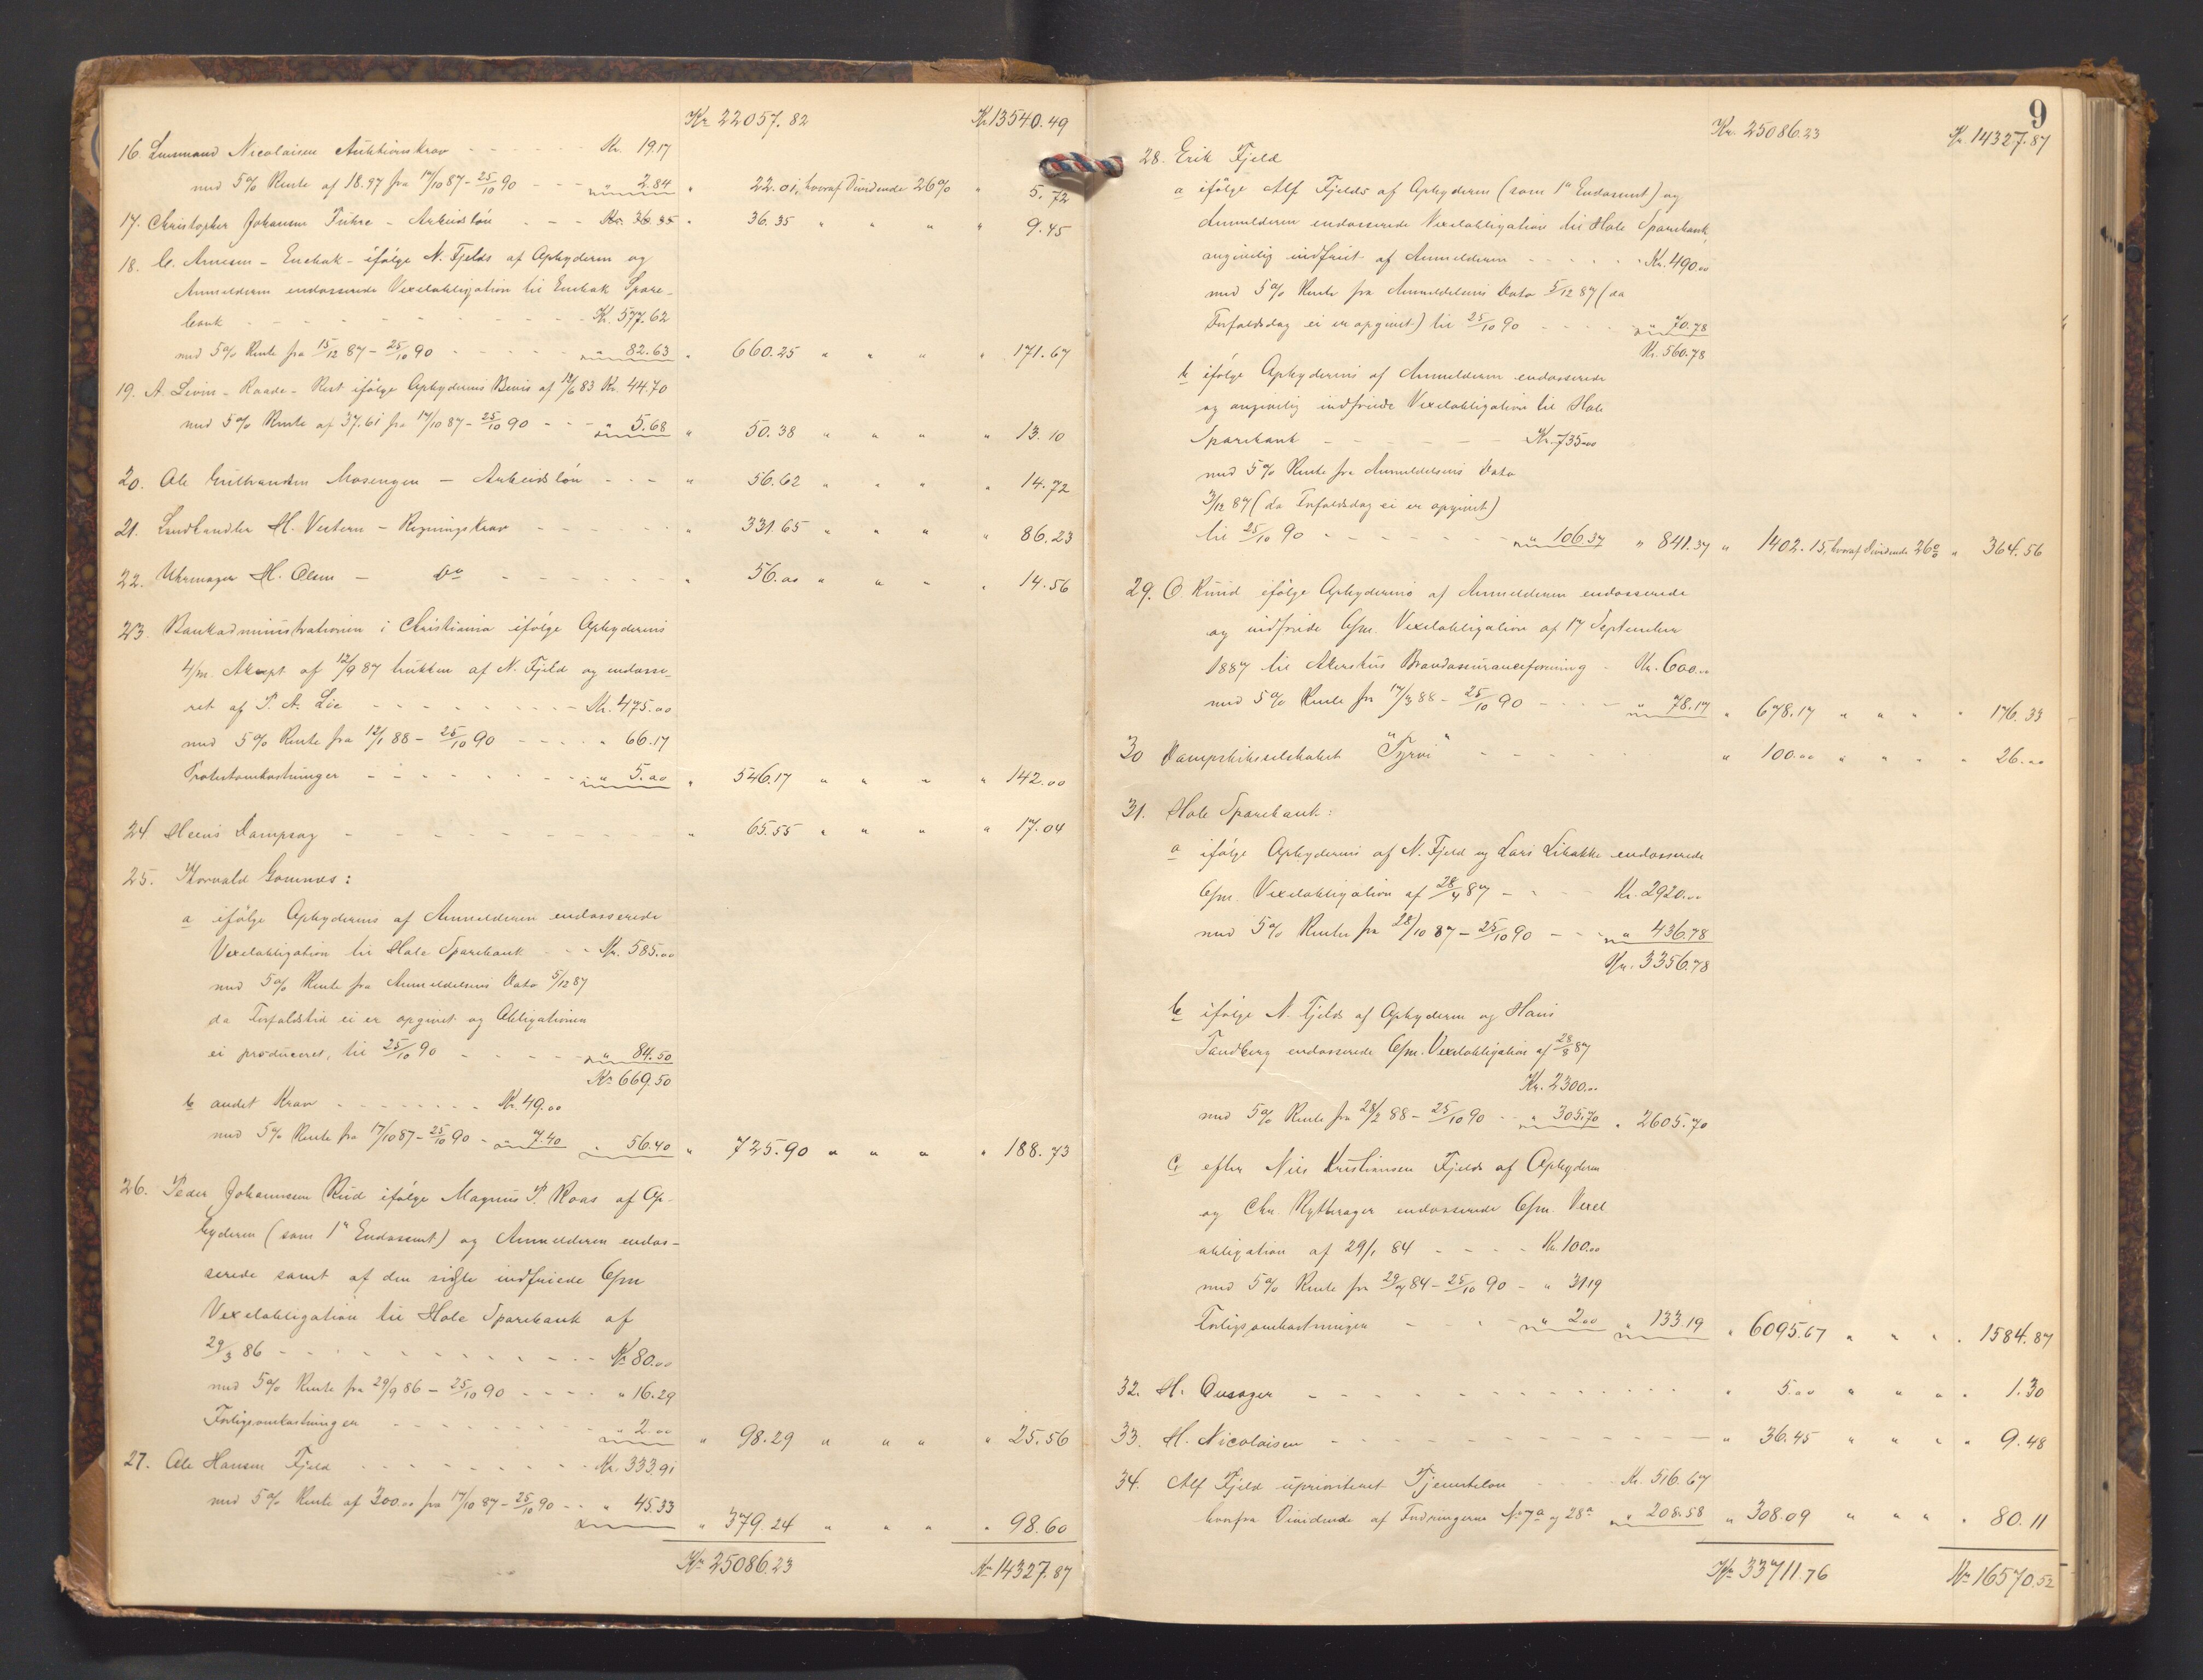 Kr 22057.82 Kr 13540.49
16. Lensmand Nicolaisen Auktionskrav - - - Kr. 19.17
med 5% Rente af 18.97 fra 17/10 87 - 25/10 90 - - " 2.84 " 22.01, hvoraf Dividende 26% " 5.72
17. Christopher Johansen - Arbeidsløn - - - Kr. 36.35 " 36.35 " " " " 9.45
18. C. Arnesen - Enebak - ifølge N. Fjelds af Aphyderen og
Anmelderen endosserede Vexelobligation til Enebak Spare-
bank - - - Kr. 577.62
med 5% Rente fra 15/12 87 - 25/10 90 - - - " 82.63 " 660.25 " " " " 171.67
19. A. Levin - Raade - Rest ifølge Aphyderens Bevis af 12/6 83 Kr. 44.70
med 5% Rente af 37.61 fra 17/10 87 - 25/10 90 - - - " 5.68 " 50.38 " " " " 13.10
20. Ole Gulbrandsen Mosengen - Arbeidsløn - - - " 56.62 " " " " 14.72
21. Landhandler H. Vestern - Regningskrav - - - " 331.65 " " " " 86.23
22. Uhrmager H. Olsen - Do - - - " 56.00 " " " " 14.56
23. Bankadministrationen i Christiania ifølge Aphyderens
4/m. Akcept af 12/9 87 trukken af N. Fjeld og endosse-
ret af P. A. Lie - - - Kr. 475.00
med 5% Rente fra 12/1 88 - 25/10 90 - - - " 66.17
Protestomkostninger - - - " 5.00 " 546.17 " " " " 142.00
24. Heens Dampsag - - - " 65.55 " " " " 17.04
25. Thorvald Gomnæs:
a ifølge Aphyderens af Anmelderen endosserede
Vexelobligation til Hole Sparebank - - - Kr. 585.00
med 5% Rente fra Anmeldelsens Dato 5/12 87
da Forfaldstid ei er opgivet og Obligationen
ei produceret, til 25/10 90 - - - " 84.50
Kr 669.50
b andet Krav - - - Kr. 49.00
med 5% Rente fra 17/10 87 - 25/10 90 - " 7.40 " 56.40 " 725.90 " " " " 188.73
26. Peder Johannesen Rud ifølge Magnus P. Roas af Op-
byderen (som 1ste Endossent) og Anmelderen endos-
serede samt af den sidste indfriede 6/m
Vexelobligation til Hole Sparebank af
29/3 86 - - - Kr 80.00
med 5% Rente fra 29/9 86 - 25/10 90 - - - " 16.29
Forligsomkostninger - - - " 2.00 " 98.29 " " " " 25.56
27. Ole Hansen Fjeld - - - Kr. 333.91
med 5% Rente af 300.00 fra 17/10 87 - 25/10 90 - - " 45.33 " 379.24 " " " " 98.60
Kr 25086.23 Kr 14327.87
9
Kr. 25086.23 Kr. 14327.87
28. Erik Fjeld
a ifølge Alf Fjelds af Aphyderen (som 1ste Endossent) og
Anmelderen endosserede Vexelobligation til Hole Sparebank,
angivelig indfriet af Anmelderen - - - Kr. 490.00
med 5% Rente fra Anmeldelsens Dato 5/12 87 (da
Forfaldsdag ei er opgivet) til 25/10 90 - - - " 70.78
Kr. 560.78
b ifølge Aphyderens af Anmelderen endosserede
og angivelig indfriede Vexelobligation til Hole
Sparebank - - - Kr. 735.00
med 5% Rente fra Anmeldelsens Dato
3/12 87 (da Forfaldsdag ei er opgivet)
til 25/10 90 - - - " 106.37 " 841.37 " 1402.15, hvoraf Dividende 26% " 364.56
29. O. Ruud ifølge Aphyderens af Anmelderen endosserede
og indfriede 6/m. Vexelobligation af 17 September
1887 til Akershus Brandassuranceforening - Kr. 600.00
med 5% Rente fra 17/3 88 - 25/10 90 - - - " 78.17 " 678.17 " " " " 176.33
30 Dampskibsselskabet "Tyrvi" - - - " 100.00 " " " " 26.00
31. Hole Sparebank:
a ifølge Aphyderens af N. Fjeld og Lars Libakke endosserede
6/m. Vexelobligation af 28/4 87 - - - Kr. 2920.00
med 5% Renter fra 28/10 87 - 25/10 90 - - - " 436.78
Kr. 3356.78
b ifølge N. Fjelds af Aphyderen og Hans
Tandberg endosserede 6/m. Vexelobligation af 28/8 87
Kr. 2300.00
med 5% Rente fra 28/2 88 - 25/10 90 - - " 305.70 " 2605.70
c efter Niels Kristiansen Fjelds af Aphyderen
og Chr. Rytterager endosserede 6/m. Vexel
obligation af 29/1 84 - - - Kr. 100.00
med 5% Rente fra 29/7 84 - 25/10 90 - " 31.19
Forligsomkostninger - - - " 2.00 " 133.19 " 6095.67 " " " " 1584.87
32. H. Onsager - - - " 5.00 " " " " 1.30
33. H. Nicolaisen - - - " 36.45 " " " " 9.48
34. Alf Fjeld uprioriteret Tjenerløn - - - Kr. 516.67
hvorfra Dividende af Fordringerne No 7a og 28a " 208.58 " 308.09 " " " " 80.11
Kr 33711.76 Kr 16570.52